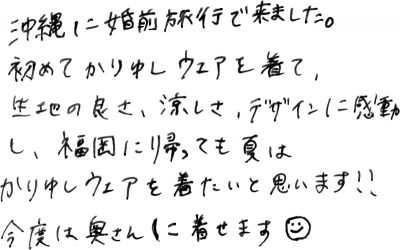 沖縄に婚前旅行で来ました。
初めてかりゆしウェアを着て、
生地の良さ、涼しさ、デザインに感動
し、福岡に帰っても夏は
かりゆしウェアを着たいと思います!!
今度は奥さんに着せます☺